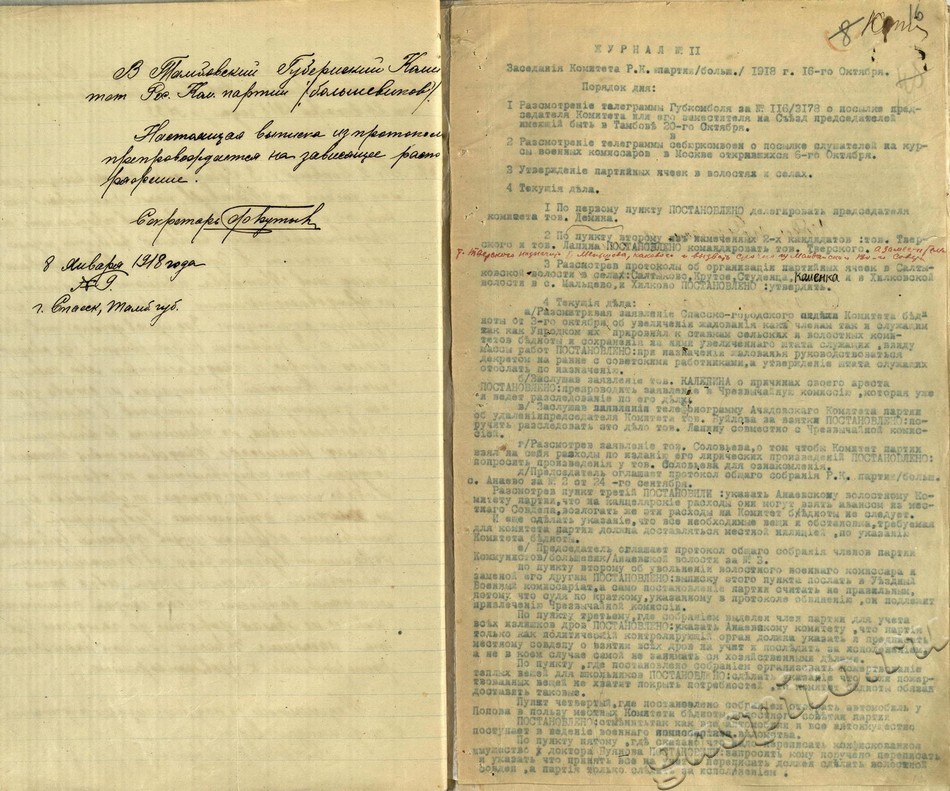 В Тамбовский Губернский Коми
тет Рос. Ком. партии /большевиков/.
Настоящая выписка из протокола
препровождается на зависящее распо
ряжение.
Секретарь
8 Января 1918 года
№ 9.
г. Спасск, Тамб. губ.
8 16
ЖУРНАЛ № II
Заседания Комитета Р.К. партии/больш./ 1918 г. 16-го Октября.
Порядок дня:
I Разсмотрение телеграммы Губкомболя за № II6/3178 о посылке пред-
седателя Комитета или его заместителя на Съезд председателей
имеющий быть в Тамбове 20-го Октября.
в
2 Разсмотрение телеграммы о посылке слушателей на кур-
сы военных комиссаров в Москве открывшихся 6-го Октября.
3 Утверждение партийных ячеек в волостях и селах.
4 Текущия дела.
I По первому пункту ПОСТАНОВЛЕНО делегировать председателя
комитета тов. Демина.
2 По пункту второму из намеченных 2-х кандидатов :тов. Твер-
ского и тов. Лапина ПОСТАНОВЛЕНО командировать тов. Тверского.
3 Разсмотрев протоколы об организации партийных ячеек в Салты-
ковской волости в селах:Салтыково,Крутое,Студенка, Каменка а в Хилковской
волости в с. Мальцево,и Хилково ПОСТАНОВЛЕНО :утвердить.
4 Текущия дела:
а/Разсматривая заявление Спасско-городского отдела Комитета бед-
ноты от 3-го октября об увеличении жалования как членам так и служащим
так как Упродком их прировнял к ставкам сельских и волостных коми-
тетов бедноты и сохранения за ними увеличенного штата служащих ,ввиду
массы работ ПОСТАНОВЛЕНО:при назначении жалованья руководствоваться
декретом на равне с советскими работниками,а утверждение штата служащих
отослать по назначению.
б/Заслушав заявление тов. КАЛЯПИНА о причинах своего ареста
ПОСТАНОВЛЕНО:препроводить заявление в Чрезвычайную комисию ,которая уже
и ведет разследование по его делу.
в/ Заслушав заявления телефонограмму Ачадовского Комитета партии
об удалении председателя Комитета тов. за взятки ПОСТАНОВЛЕНО:по-
ручить разследовать это дело тов. Лапину совместно с Чрезвычайной комис-
сией.
г/Разсмотрев заявление тов. Соловьева,о том чтобы Комитет партии
взял на себя расходы по изданию его лирических произведений ПОСТАНОВЛЕНО:
попросить произведения у тов. Соловьева для ознакомления.
д/Председатель оглашает протокол общего собрания Р.К. партии/больш.
с. Анаево за № 2 от 24 -го сентября.
Разсмотрев пункт третий ПОСТАНОВИЛИ :указать Анаевскому волостному Ко-
митету партии,что на канцелярские расходы они могут взять авансом из мес-
тнаго Совдепа,возлогать же эти расходы на Комитет бедноты не следует.
И еще сделать указание,что все необходимые вещи и обстановка,требуемая
для комитета партии должна доставляться местной милицией ,по указанию
Комитета бедноты.
е/ Председатель оглашает протокол общаго собрания членов партии
Коммунистов/большевик/Анаевской волости за № 3.
по пункту второму об увольнении волостного военнаго комиссара и
заменой его другим ПОСТАНОВЛЕНО:выписку этого пункта послать в Уездный
Военный комиссариат,а само постановление партии считать не правильным,
потому что судя по краткому,указанному в протоколе обвинению ,он подлежит
привлечению Чрезвычайной Комиссии.
По пункту третьему,где собранием выделен член партии для учета
всех излишков дров ПОСТАНОВЛЕНО:указать Анаевскому комитету ,что партия
только как политический контролирующий орган должна указать и предписать
местному совдепу о взятии всех дров на учет и последить за исполнением,
а не в коем случае самой не заниматься хозяйственными делами.
По пункту ,где постановлено собранием организовать пожертвование
теплых вещей для школьников ПОСТАНОВЛЕНО:сделать указание что если пожер-
твованных вещей не хватит покрыть потребностей то комитет бедноты обязан
доставить таковые.
Пункт четвертый,где постановлено собранием отобрать автомобиль у
Попова в пользу местных Комитета бедноты,волостного совета и партии
ПОСТАНОВЛЕНО: так как все автомобили и все автоимущество
поступает в ведение военнаго комиссариата.
По пункту пятому ,где переписать конфискованное
имущество у доктора ПОСТАНОВЛЕНО:запросить кому поручено переписать
и указать что принять все на учет и переписать должен сделать волостной
Совдеп ,а партия только следить за исполнением .
gaspito.ru